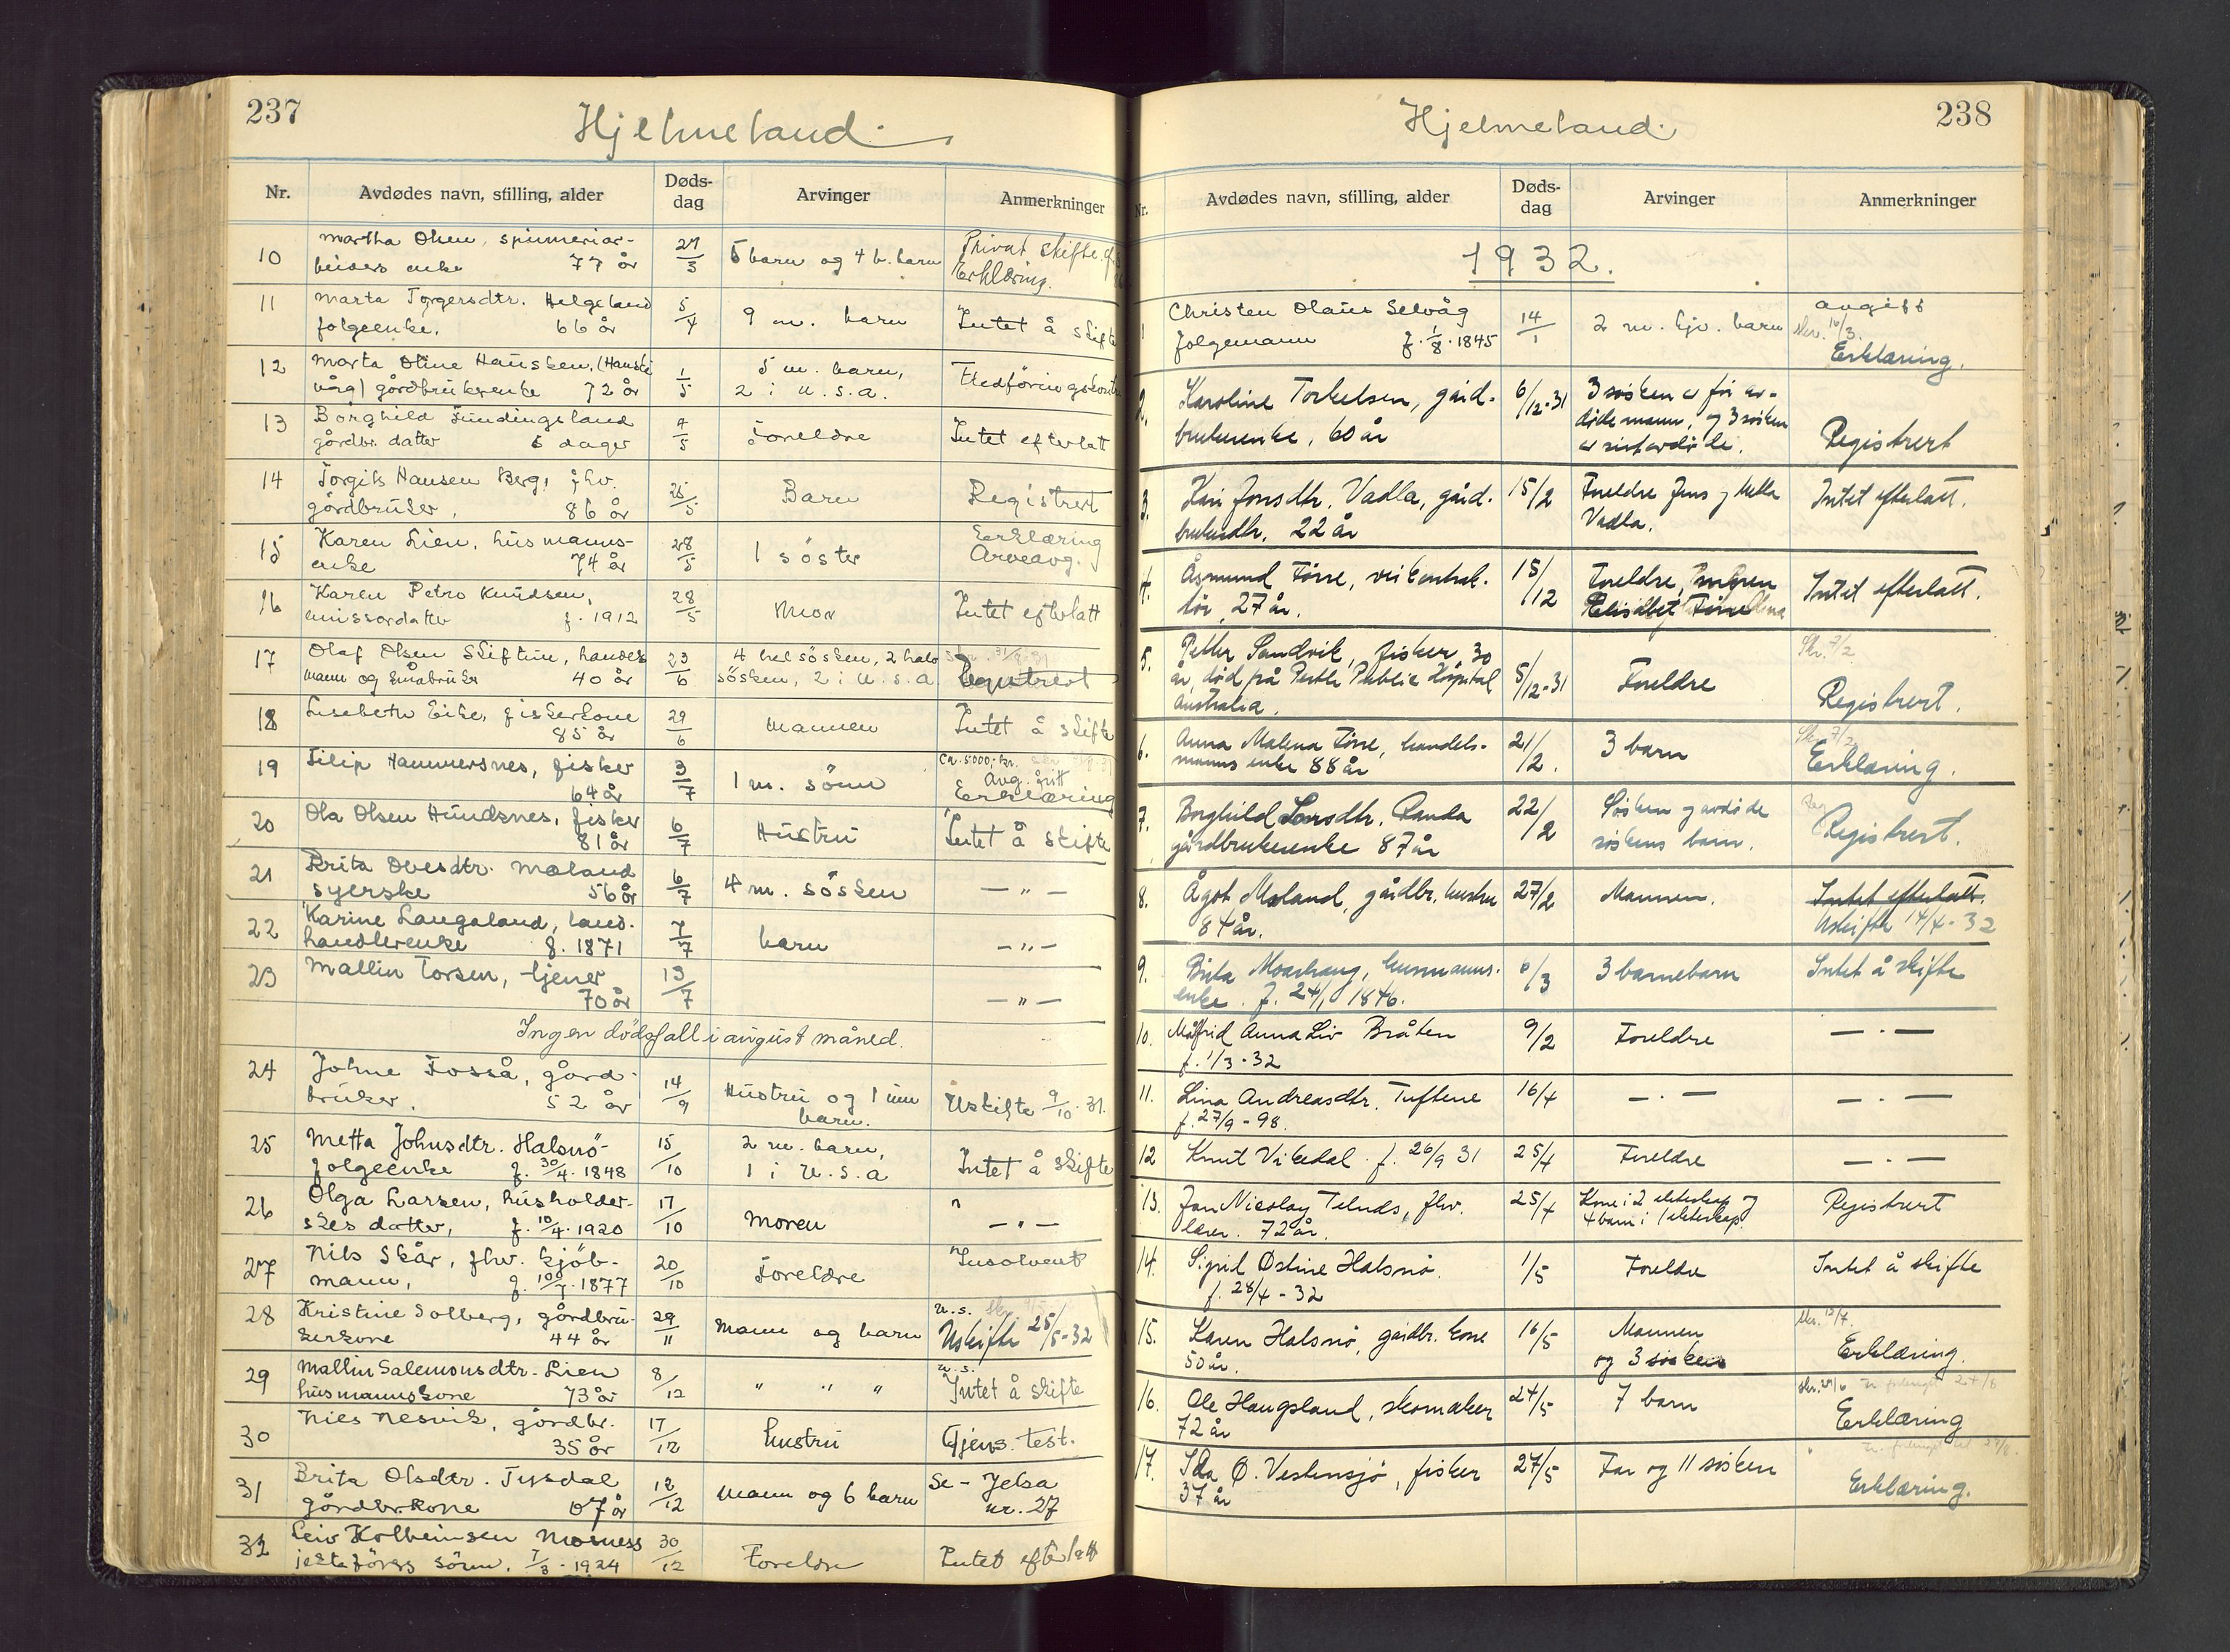 237
Hjelmeland.
Nr. Avdødes navn, stilling, alder Døds-dag Arvinger Anmerkninger
10 Martha Olsen, spinneriar-
beiders enke 77 år 27/3 5 barn og 4 b. barn Privat skifte
Erklæring.
11 Marta Torgersdtr. Helgeland
folgeenke. 66 år 5/4 9 m. barn Intet å skifte
12 Marta Oline Hausken,
våg) gårdbrukerenke 72 år 1/5 5 m. barn,
2 i U.S.A.
13 Borghild Fundingsland
gårdbr. datter 5 dager 4/5 Foreldre Intet efterlatt
14 Torgils Hansen Berg, fhv.
gårdbruker, 86 år 25/5 Barn Registrert
15 Karen Lien, husmanns-
enke 74 år 28/5 1 söster Erklæring
Arveavg.
16 Karen Petro Knudsen,
emissørdatter f. 1912 28/5 Mor Intet efterlatt
17 Olaf Olsen Skiftun, handels
mann og småbruker 40 år 23/6 4 helsösken, 2 halv
sösken, 2 i U.S.A. Registrert
18 Lisebeth Eike, fiskerkone
85 år 29/6 Mannen Intet å skifte
19 Filip Hammersnes, fisker
64 år 3/7 1 m. sönn Ca. 5000,- kr.
Avg. fritt
Erklæring
20 Ola Olsen Hundsnes, fisker
81 år 6/7 Hustru Intet å skifte
21 Brita Ovesdtr. Mæland
syerske 56 år 6/7 4 m. sösken — " —
22 Karine Laugaland, land-
handlerenke f. 1871 7/7 barn — " —
23 Mallin Torsen, tjener
70 år 13/7 — " —
Ingen dödsfall i august måned.
24 Johne Fosså, gård-
bruker. 52 år 14/9 Hustru og 1 um
barn. Uskifte 9/10-31.
25 Metta Johnsdtr. Halsnö-
folgeenke f. 30/4. 1848 15/10 2 m. barn,
1 i U.S.A Intet å skifte
26 Olga Larsen, husholder-
skes datter, f. 10/4. 1920 17/10 Moren — " —
27 Nils Skår, fhv. kjöb-
mann, 1877 20/10 Foreldre Insolvent
28 Kristine Solberg, gårdbru-
kerkone 44 år 29/11 Mann og barn U.S.
Uskifte 25/5-32
29 Mallin Salemonsdtr. Lien
husmannskone 73 år 8/12 " " " U.S.
Intet å skifte
30 Nies Nesvik, gårdbr.
35 år 17/12 Hustru Gjens. test.
31 Brita Olsdtr. Tysdal
gårdbr.kone 67 år 12/12 Mann og 6 barn Se - Jelsa
nr. 27
32 Leiv Kolbeinsen
sönn, 7/3 - 1924 30/12 Foreldre Intet efterlatt
238
Hjelmeland.
Nr. Avdødes navn, stilling, alder Døds-dag Arvinger Anmerkninger
1932.
1 Christen Olaus Selvåg
folgemann f. 1/8. 1845 14/1 2 m. barn avgift
skr. 10/3.
Erklæring.
2. Karoline Torkelsen, gård-
brukerenke, 60 år 6/12-31 3 søsken av før av-
døde mann, og 3 søsken
av sist avdøde. Registrert
3. Kari Jonsdtr. Vadla, gård-
brukerdtr. 22 år 15/2 Foreldre Jens og
Vadla. Intet efterlatt.
4. Åsmund Førre, veikontrak-
tør, 27 år. 15/12 Foreldre,
Elisabet Førre Intet efterlatt.
5. Petter Sandvik, fisker 30
år, død på Perth Public Hospital
Australia. 5/12-31 Foreldre Skr. 7/2
Registrert.
6. Anna Malena Førre, handels-
manns enke 88 år 21/2. 3 barn Skr. 7/2
Erklæring.
7. Borghild Larsdtr. Randa
gårdbrukerenke 87 år 22/2 Søsken og avdøde
søskens barn. Registrert.
8. Ågot Mæland, gårdbr. hustru
84 år. 27/2 Mannen. Intet efterlatt.
Uskifte 14/4-32
9. Brita Moarhaug, husmanns-
enke. f. 24/1 1846. 6/3 3 barnebarn Intet å skifte
10. Målfrid Anna Liv Bråten
f. 1/3-32 9/2 Foreldre — " —
11. Lina Andreasdtr. Tuftene
f. 27/9-98. 16/4 — " — — " —
12 Knut Vikedal f. 26/9 31 25/4 Foreldre — " —
13. Jan Nicolay Telnes, fhv.
lærer. 72 år. 25/4 Kone i 2 ekteskap og
4 barn i 1 ekteskap. Registrert
14. Sigrid Østine Halsnø.
f. 28/4-32 1/5 Foreldre Intet å skifte
15. Karen Halsnø, gårdbr. kone
50 år. 16/5 Mannen
og 3 søsken Erklæring.
16. Ole Haugsland, skomaker
72 år 24/5 7 barn Erklæring
17. Ø. Vestersjø, fisker
37 år 27/5 Far og 11 søsken Erklæring.